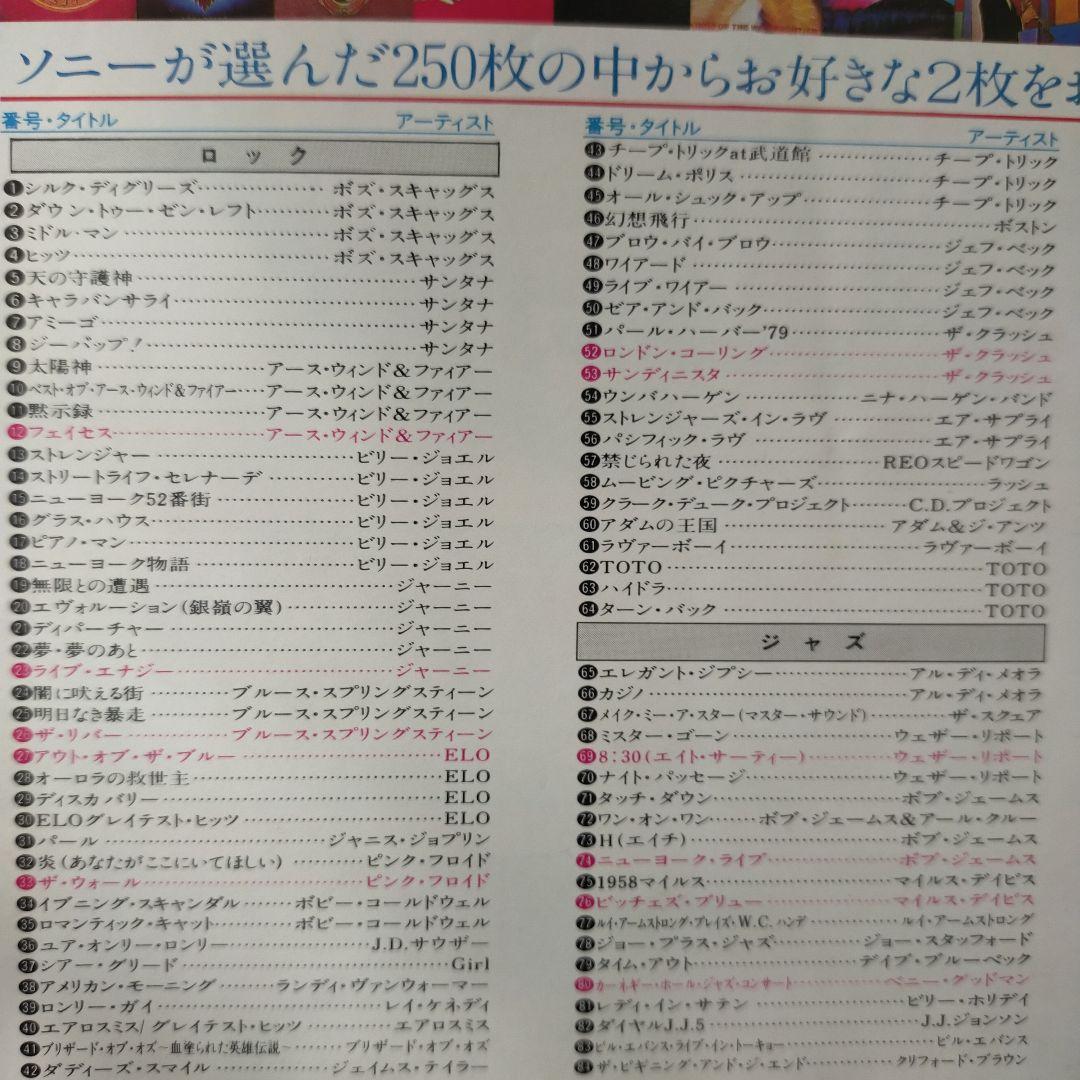 ソニーが選んだ250枚の中からお好きな2枚をお
番号・タイトル アーティスト
ロック
①シルク・ディグリーズ ボズ・スキャッグス
②ダウン・トゥー・ゼン・レフト ボズ・スキャッグス
③ミドル・マン ボズ・スキャッグス
④ヒッツ ボズ・スキャッグス
⑤天の守護神 サンタナ
⑥キャラバンサライ サンタナ
⑦アミーゴ サンタナ
⑧ジーバップ! サンタナ
⑨太陽神 アース・ウィンド&ファイアー
⑩ベスト・オブ・アース・ウィンド&ファイアー アース・ウィンド&ファイアー
⑪黙示録 アース・ウィンド&ファイアー
⑫フェイセス アース・ウィンド&ファイアー
⑬ストレンジャー ビリー・ジョエル
⑭ストリートライフ・セレナーデ ビリー・ジョエル
⑮ニューヨーク52番街 ビリー・ジョエル
⑯グラス・ハウス ビリー・ジョエル
⑰ピアノ・マン ビリー・ジョエル
⑱ニューヨーク物語 ビリー・ジョエル
⑲無限との遭遇 ジャーニー
⑳エヴォルーション(銀嶺の翼) ジャーニー
㉑ディパーチャー ジャーニー
㉒夢・夢のあと ジャーニー
㉓ライブ・エナジー ジャーニー
㉔闇に吠える街 ブルース・スプリングスティーン
㉕明日なき暴走 ブルース・スプリングスティーン
㉖ザ・リバー ブルース・スプリングスティーン
㉗アウト・オブ・ザ・ブルー ELO
㉘オーロラの救世主 ELO
㉙ディスカバリー ELO
㉚ELOグレイテスト・ヒッツ ELO
㉛パール ジャニス・ジョプリン
㉜炎(あなたがここにいてほしい) ピンク・フロイド
㉝ザ・ウォール ピンク・フロイド
㉞イブニング・スキャンダル ボビー・コールドウェル
㉟ロマンティック・キャット ボビー・コールドウェル
㊱ユア・オンリー・ロンリー J.D.サウザー
㊲シアー・グリード Girl
㊳アメリカン・モーニング ランディ・ヴァンウォーマー
㊴ロンリー・ガイ レイ・ケネディ
㊵エアロスミス/グレイテスト・ヒッツ エアロスミス
㊶ブリザード・オブ・オズ〜血塗られた英雄伝説〜 ブリザード・オブ・オズ
㊷ダディーズ・スマイル ジェイムス・テイラー
番号・タイトル アーティスト
㊸チープ・トリックat武道館 チープ・トリック
㊹ドリーム・ポリス チープ・トリック
㊺オール・シュック・アップ チープ・トリック
㊻幻想飛行 ボストン
㊼ブロウ・バイ・ブロウ ジェフ・ベック
㊽ワイアード ジェフ・ベック
㊾ライブ・ワイアー ジェフ・ベック
㊿ゼア・アンド・バック ジェフ・ベック
51パール・ハーバー'79 ザ・クラッシュ
52ロンドン・コーリング ザ・クラッシュ
53サンディニスタ ザ・クラッシュ
54ウンバハーゲン ニナ・ハーゲン・バンド
55ストレンジャーズ・イン・ラヴ エア・サプライ
56パシフィック・ラヴ エア・サプライ
57禁じられた夜 REOスピードワゴン
58ムービング・ピクチャーズ ラッシュ
59クラーク・デューク・プロジェクト C.D.プロジェクト
60アダムの王国 アダム&ジ・アンツ
61ラヴァーボーイ ラヴァーボーイ
62TOTO TOTO
63ハイドラ TOTO
64ターン・バック TOTO
ジャズ
65エレガント・ジプシー アル・ディ・メオラ
66カジノ アル・ディ・メオラ
67メイク・ミー・ア・スター(マスター・サウンド) ザ・スクェア
68ミスター・ゴーン ウェザー・リポート
698:30(エイト・サーティー) ウェザー・リポート
70ナイト・パッセージ ウェザー・リポート
71タッチ・ダウン ボブ・ジェームス
72ワン・オン・ワン ボブ・ジェームス&アール・クルー
73H(エイチ) ボブ・ジェームス
74ニューヨーク・ライブ ボブ・ジェームス
751958マイルス マイルス・デイビス
76ビッチェズ・ブリュー マイルス・デイビス
77ルイ・アームストロング・プレイズ・W.C.ハンデ ルイ・アームストロング
78ジョー・プラス・ジャズ ジョー・スタッフォード
79タイム・アウト デイブ・ブルーベック
80カーネギー・ホール・ジャズ・コンサート ベニー・グッドマン
81レディ・イン・サテン ビリー・ホリデイ
82ダイヤルJ.J.5 J.J.ジョンソン
83ビル・エバンス・ライブ・イン・トーキョー ビル・エバンス
84ザ・ビギニング・アンド・ジ・エンド クリフォード・ブラウン